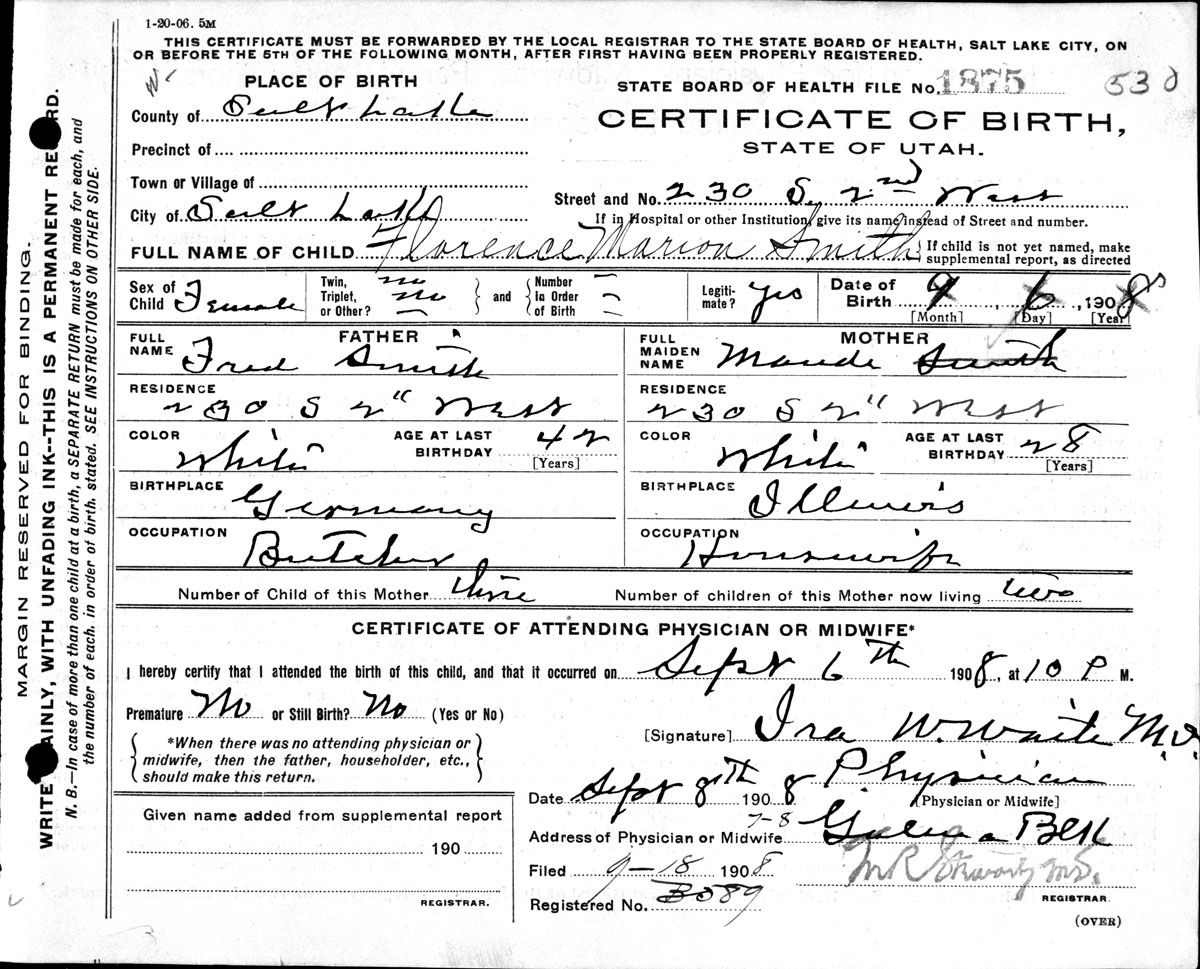 1-20-06. 5M
THIS CERTIFICATE MUST BE FORWARDED BY THE LOCAL REGISTRAR TO THE STATE BOARD OF HEALTH, SALT LAKE CITY, ON
OR BEFORE THE 5TH OF THE FOLLOWING MONTH, AFTER FIRST HAVING BEEN PROPERLY REGISTERED.
PLACE OF BIRTH
STATE BOARD OF HEALTH FILE No. 1875 530
County of Salt Lake
CERTIFICATE OF BIRTH,
STATE OF UTAH.
Precinct of
Town or Village of
Street and No. 230 S. 2nd West
City of Salt Lake
If in Hospital or other Institution, give its name instead of Street and number.
FULL NAME OF CHILD Florence Marion Smith
If child is not yet named, make
supplemental report, as directed
Sex of Child Female
Twin, Triplet, or Other? no no
and
Number In Order of Birth
Legiti-mate? Yes
Date of Birth 9, 6, 1908
[Month] [Day] [Year]
FATHER
FULL NAME Fred Smith
MOTHER
FULL MAIDEN NAME Maude Smith
RESIDENCE 230 S 2" West
RESIDENCE 230 S 2" West
COLOR White AGE AT LAST BIRTHDAY 42 [Years]
COLOR White AGE AT LAST BIRTHDAY 28 [Years]
BIRTHPLACE Germany
BIRTHPLACE Illinois
OCCUPATION Butcher
OCCUPATION Housewife
Number of Child of this Mother three Number of children of this Mother now living two
CERTIFICATE OF ATTENDING PHYSICIAN OR MIDWIFE*
I hereby certify that I attended the birth of this child, and that it occurred on Sept 6th 1908, at 10 P M.
Premature No or Still Birth? No (Yes or No)
[Signature] Ira W. Waite M.D.
*When there was no attending physician or
midwife, then the father, householder, etc.,
should make this return.
Date Sept 8th 1908 Physician
[Physician or Midwife]
Given name added from supplemental report
190
REGISTRAR.
7-8
Address of Physician or Midwife Galena Blk
Filed 9-18 1908
REGISTRAR.
Registered No. 3089
(OVER)
MARGIN RESERVED FOR BINDING.
WRITE AINLY, WITH UNFADING INK--THIS IS A PERMANENT RE RD.
N. B.—In case of more than one child at a birth, a SEPARATE RETURN must be made for each, and
the number of each, in order of birth, stated. SEE INSTRUCTIONS ON OTHER SIDE.